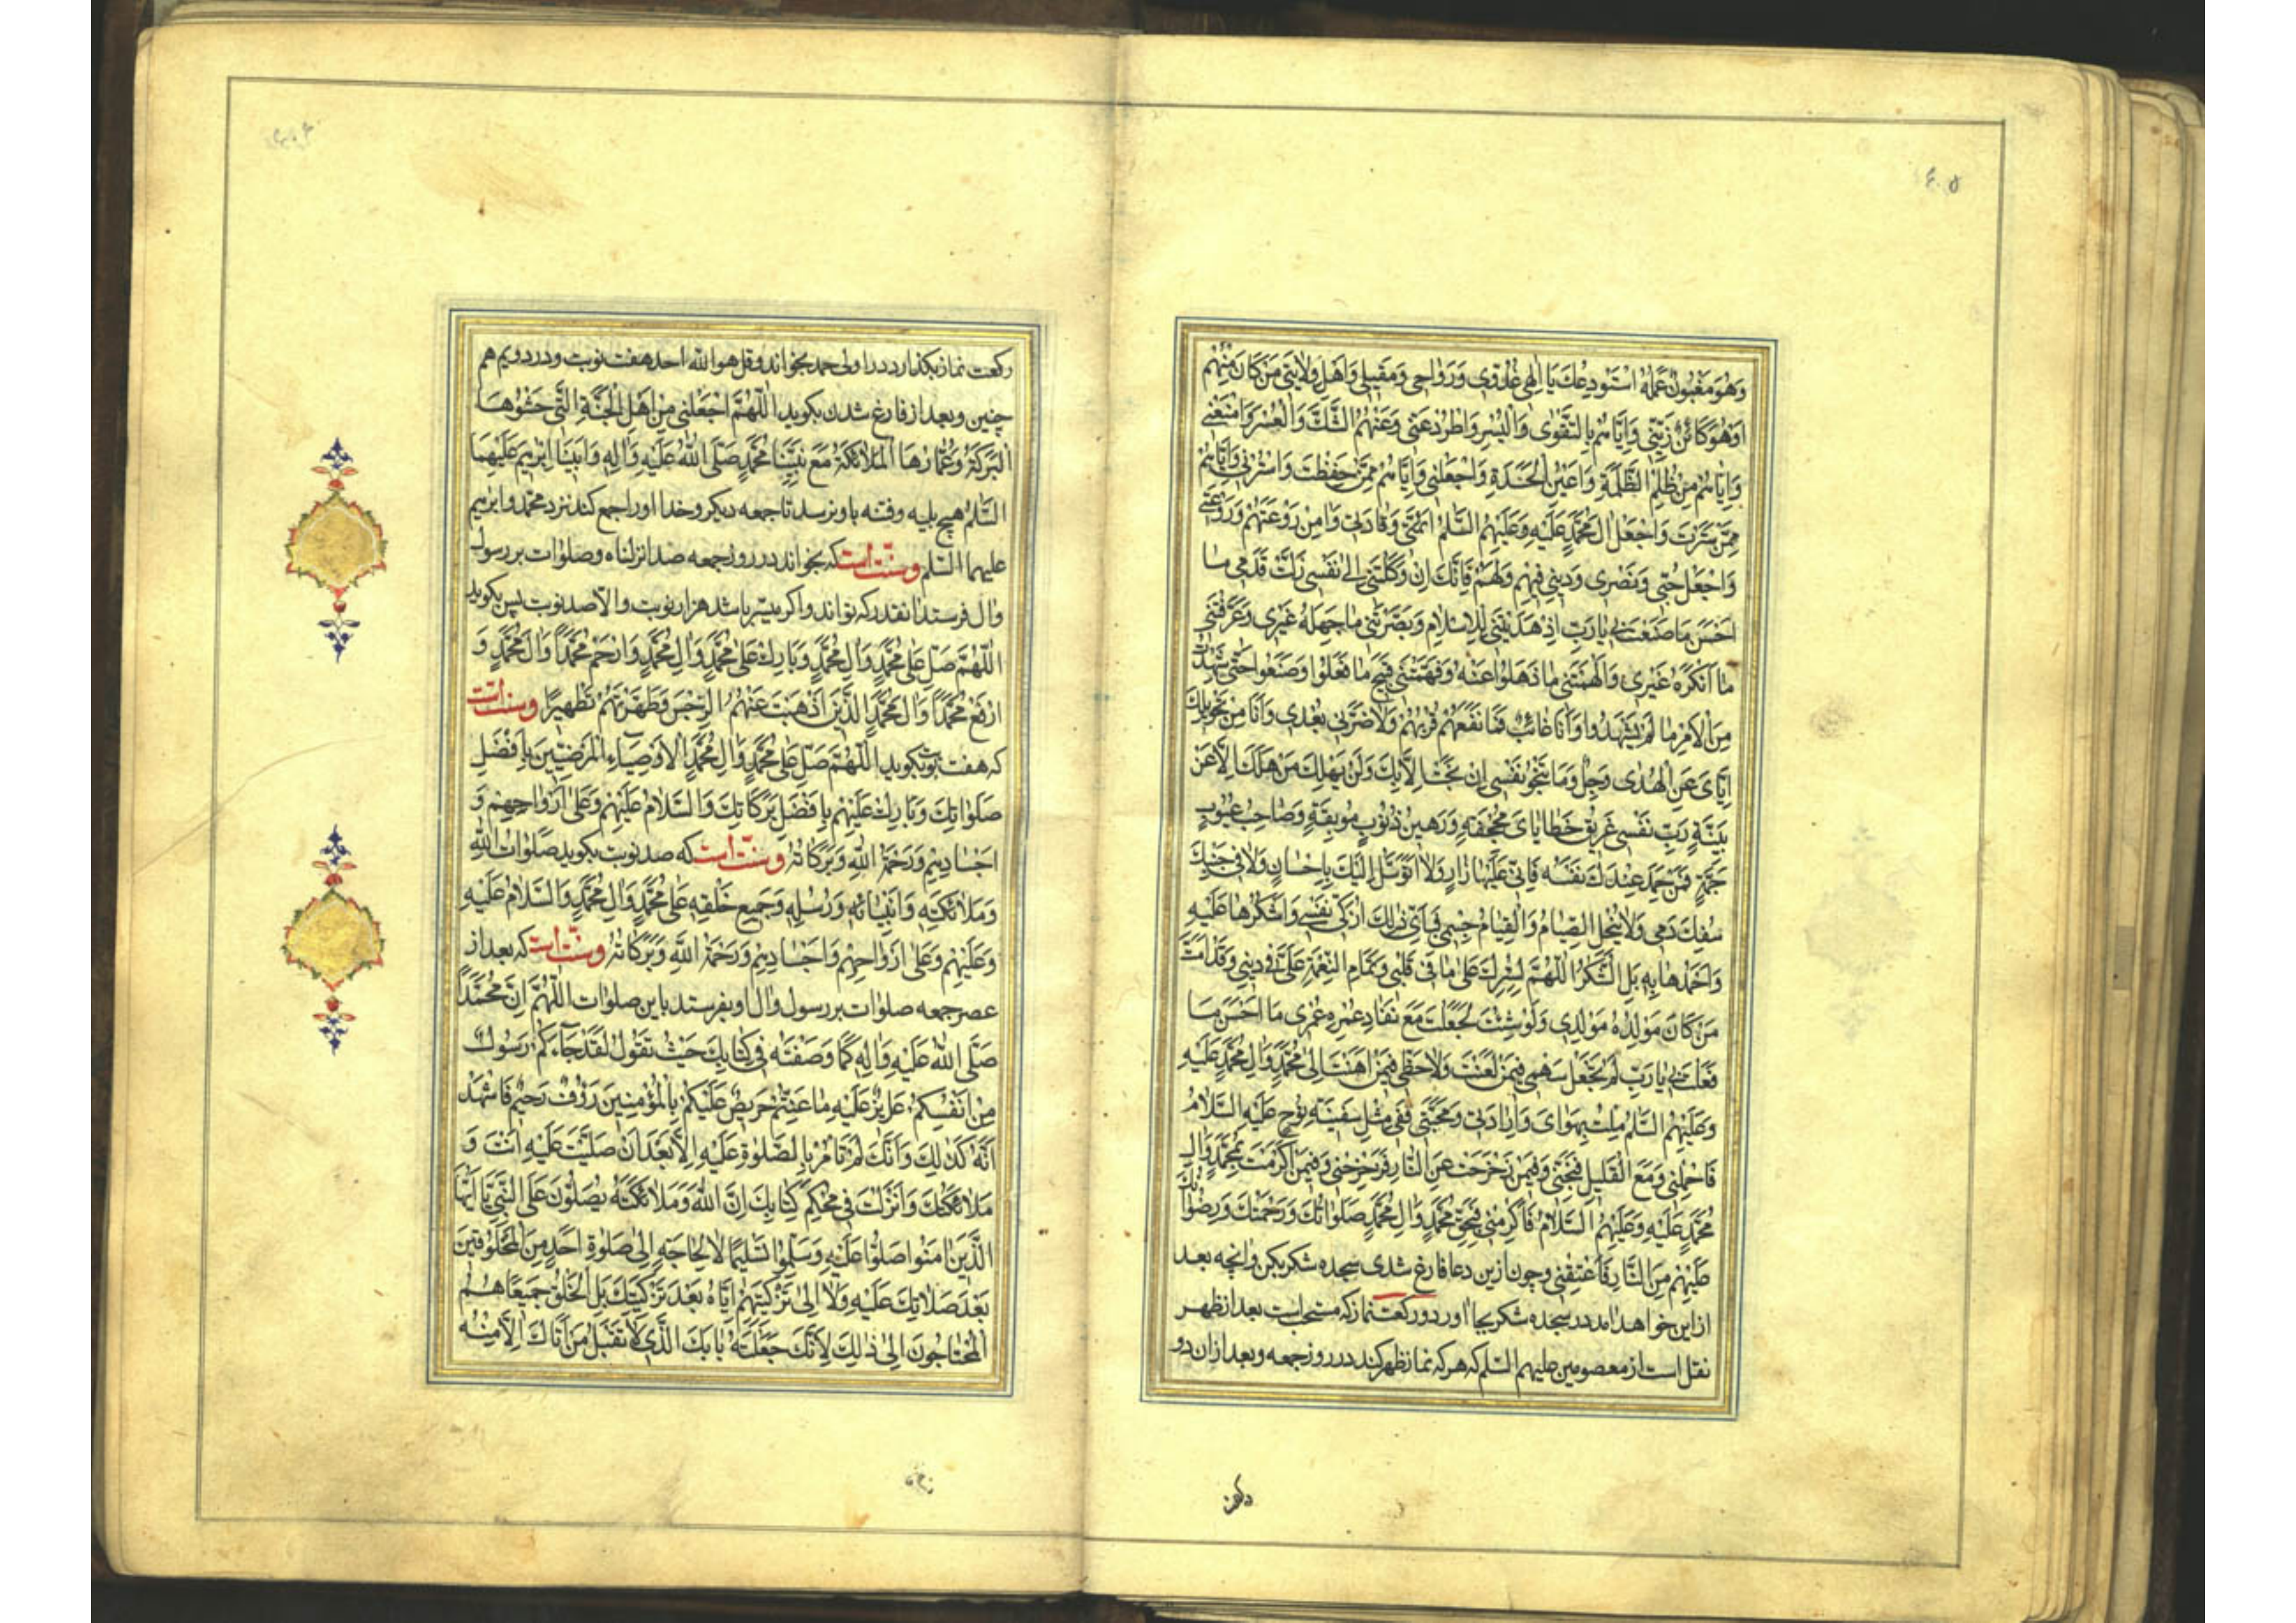 وَهُوَ مَغْبُونٌ عَمَلُهُ اَسْتَوْدِعُكَ يَا اِلٰهِي غُدُوّي وَرَوَاحِي وَمَقيلِي وَاَهْلَ وَلايَتِي مَنْ كَانَ مِنْهُمْ
اَوْ هُوَ كَائِنٌ زَيِّنِّي وَاِيَّاهُمْ بِالتَّقْوٰى وَالْيُسْرِ وَاطْرُدْ عَنِّي وَعَنْهُمُ الشَّكَّ وَالْعُسْرَ وَامْنَعْنِي
وَاِيَّاهُمْ مِنْ ظُلْمِ الظَّلَمَةِ وَاَعْيُنِ الْحَسَدَةِ وَاجْعَلْنِي وَاِيَّاهُمْ مِمَّنْ حَفِظْتَ وَاسْتُرْنِي وَاِيَّاهُمْ
مِمَّنْ سَتَرْتَ وَاجْعَلْ اٰلَ مُحَمَّدٍ عَلَيْهِ وَعَلَيْهِمُ السَّلٰمُ اَئِمَّتِي وَقَادَتِي وَاٰمِنْ رَوْعَتَهُمْ وَرَوْعَتِي
وَاجْعَلْ حُبِّي وَنَصْرِي وَدِينِي فِيهِمْ وَلَهُمْ فَاِنَّكَ اِنْ وَكَلْتَنِي اِلٰى نَفْسِي زَلَّتْ قَدَمِي مَا
اَحْسَنَ مَا صَنَعْتَ بِي يَا رَبِّ اِذْ هَدَيْتَنِي لِلْاِسْلَامِ وَبَصَّرْتَنِي مَا جَهِلَهُ غَيْرِي وَعَرَّفْتَنِي
مَا اَنْكَرَهُ غَيْرِي وَاَلْهَمْتَنِي مَا ذَهَلُوا عَنْهُ وَفَهَّمْتَنِي قَبِيحَ مَا فَعَلُوا وَصَنَعُوا حَتّٰى شَهِدْتُ
مِنَ الْاَمْرِ مَا لَمْ يَشْهَدُوا وَاَنَا غَائِبٌ فَمَا نَفَعَهُمْ قُرْبُهُمْ وَلَا ضَرَّنِي بُعْدِي وَاَنَا مِنْ تَحْوِيلِكَ
اِيَّايَ عَنِ الْهُدٰى وَجِلٌ وَمَا تَنْجُو نَفْسِي اِنْ نَجَتْ اِلَّا بِكَ وَلَنْ يَهْلِكَ مَنْ هَلَكَ اِلَّا عَنْ
بَيِّنَةٍ رَبِّ نَفْسِي غَرِيقُ خَطَايَايَ مُجْحِفَةٍ وَرَهِينُ ذُنُوبٍ مُوبِقَةٍ وَصَاحِبُ عُيُوبٍ
جَمَّةٍ فَمَنْ حَمِدَ عِنْدَكَ نَفْسَهُ فَاِنِّي عَلَيْهَا زَارٍ وَلَا اَتَوَسَّلُ اِلَيْكَ بِاِحْسَانٍ وَلَا فِي جَنْبِكَ
سُفِكَ دَمِي وَلَا يُنْحِلُ الصِّيَامُ وَالْقِيَامُ جِسْمِي فَبِاَيِّ ذٰلِكَ اُزَكِّي نَفْسِي وَاَشْكُرُهَا عَلَيْهِ
وَاَحْمَدُهَا بِهِ بَلِ الشُّكْرُ اللّٰهُمَّ لِسَتْرِكَ عَلٰى مَا فِي قَلْبِي وَتَمَامِ النِّعْمَةِ عَلَيَّ فِي دِينِي وَقَدْ اَمَتَّ
مَنْ كَانَ مَوْلِدُهُ مَوْلِدِي وَلَوْ شِئْتَ لَجَعَلْتَ مَعَ نَفَادِ عُمْرِهِ عُمْرِي مَا اَحْسَنَ مَا
فَعَلْتَ بِي يَا رَبِّ لَمْ تَجْعَلْ سَهْمِي فِيمَنْ لَعَنْتَ وَلَا حَظِّي فِيمَنْ اَهَنْتَ اِلٰى مُحَمَّدٍ وَاٰلِ مُحَمَّدٍ عَلَيْهِ
وَعَلَيْهِمُ السَّلٰمُ مِلْتُ بِهَوَايَ وَاِرَادَتِي وَمَحَبَّتِي فَفِي مِثْلِ سَفِينَةِ نُوحٍ عَلَيْهِ السَّلَامُ
فَاحْمِلْنِي وَمَعَ الْقَلِيلِ فَنَجِّنِي وَفِيمَنْ زَحْزَحْتَ عَنِ النَّارِ فَزَحْزِحْنِي وَفِيمَنْ اَكْرَمْتَ بِمُحَمَّدٍ وَاٰلِ
مُحَمَّدٍ عَلَيْهِ وَعَلَيْهِمُ السَّلَامُ فَاَكْرِمْنِي بِحَقِّ مُحَمَّدٍ وَاٰلِ مُحَمَّدٍ صَلَوَاتُكَ وَرَحْمَتُكَ وَرِضْوَانُكَ
عَلَيْهِمْ مِنَ النَّارِ فَاَعْتِقْنِي وچون ازین دعا فارغ شدی سجده شکر بکن وانچه بعد
از این خواهد امد در سجده شکر بجا اور دو رکعت نماز که مستحب است بعد از ظهر
نقل است از معصومین علیهم السلم که هر که نماز ظهر کند در روز جمعه و بعد ازان دو
رکعت نماز بکذارد در اولی حمد بخواند و قل هو الله احد هفت نوبت و در دویم هم
چنین و بعد از فارغ شدن بکوید اَللّٰهُمَّ اجْعَلْنِي مِنْ اَهْلِ الْجَنَّةِ الَّتِي حَشْوُهَا
الْبَرَكَةُ وَعُمَّارُهَا الْمَلَائِكَةُ مَعَ نَبِيِّنَا مُحَمَّدٍ صَلَّى اللهُ عَلَيْهِ وَاٰلِهِ وَاَبِينَا اِبْرٰهِيمَ عَلَيْهِمَا
السَّلٰمُ هیچ بلیه و فتنه باو نرسد تا جمعه دیکر و خدا او را جمع کند نزد محمد و ابرهیم
علیهما السّلم وسنّت است که بخواند در روز جمعه صد انزلناه و صلوات بر رسول
و ال فرستد انقدر که تواند و اکر میسّر باشد هزار نوبت و الا صد نوبت پس بکوید
اَللّٰهُمَّ صَلِّ عَلٰى مُحَمَّدٍ وَاٰلِ مُحَمَّدٍ وَبَارِكْ عَلٰى مُحَمَّدٍ وَاٰلِ مُحَمَّدٍ وَارْحَمْ مُحَمَّدًا وَاٰلَ مُحَمَّدٍ وَ
ارْفَعْ مُحَمَّدًا وَاٰلَ مُحَمَّدٍ الَّذِينَ اَذْهَبْتَ عَنْهُمُ الرِّجْسَ وَطَهَّرْتَهُمْ تَطْهِيرًا وسنّت است
که هفت نوبت بکوید اَللّٰهُمَّ صَلِّ عَلٰى مُحَمَّدٍ وَاٰلِ مُحَمَّدٍ الْاَوْصِيَاءِ الْمَرْضِيِّينَ بِاَفْضَلِ
صَلَوَاتِكَ وَبَارِكْ عَلَيْهِمْ بِاَفْضَلِ بَرَكَاتِكَ وَالسَّلَامُ عَلَيْهِمْ وَعَلٰى اَرْوَاحِهِمْ وَ
اَجْسَادِهِمْ وَرَحْمَةُ اللهِ وَبَرَكَاتُهُ وسنّت است که صد نوبت بکوید صَلَوَاتُ اللهِ
وَمَلَائِكَتِهِ وَاَنْبِيَائِهِ وَرُسُلِهِ وَجَمِيعِ خَلْقِهِ عَلٰى مُحَمَّدٍ وَاٰلِ مُحَمَّدٍ وَالسَّلَامُ عَلَيْهِ
وَعَلَيْهِمْ وَعَلٰى اَرْوَاحِهِمْ وَاَجْسَادِهِمْ وَرَحْمَةُ اللهِ وَبَرَكَاتُهُ وسنّت است که بعد از
عصر جمعه صلوات بر رسول و ال او بفرستد باین صلوات اَللّٰهُمَّ اِنَّ مُحَمَّدًا
صَلَّى اللهُ عَلَيْهِ وَاٰلِهِ كَمَا وَصَفْتَهُ فِي كِتَابِكَ حَيْثُ تَقُولُ لَقَدْ جَاءَكُمْ رَسُولٌ
مِنْ اَنْفُسِكُمْ عَزِيزٌ عَلَيْهِ مَا عَنِتُّمْ حَرِيصٌ عَلَيْكُمْ بِالْمُؤْمِنِينَ رَؤُفٌ رَحِيمٌ فَاَشْهَدُ
اَنَّهُ كَذٰلِكَ وَاَنَّكَ لَمْ تَاْمُرْ بِالصَّلٰوةِ عَلَيْهِ اِلَّا بَعْدَ اَنْ صَلَّيْتَ عَلَيْهِ اَنْتَ وَ
مَلَائِكَتُكَ وَاَنْزَلْتَ فِي مُحْكَمِ كِتَابِكَ اِنَّ اللهَ وَمَلَائِكَتَهُ يُصَلُّونَ عَلَى النَّبِيِّ يَا اَيُّهَا
الَّذِينَ اٰمَنُوا صَلُّوا عَلَيْهِ وَسَلِّمُوا تَسْلِيمًا لَا لِحَاجَةٍ اِلٰى صَلٰوةِ اَحَدٍ مِنَ الْمَخْلُوقِينَ
بَعْدَ صَلَاتِكَ عَلَيْهِ وَلَا اِلٰى تَزْكِيَتِهِمْ اِيَّاهُ بَعْدَ تَزْكِيَتِكَ بَلِ الْخَلْقُ جَمِيعًا هُمُ
الْمُحْتَاجُونَ اِلٰى ذٰلِكَ لِاَنَّكَ جَعَلْتَهُ بَابَكَ الَّذِي لَا تَقْبَلُ مَنْ اَتَاكَ اِلَّا مِنْهُ